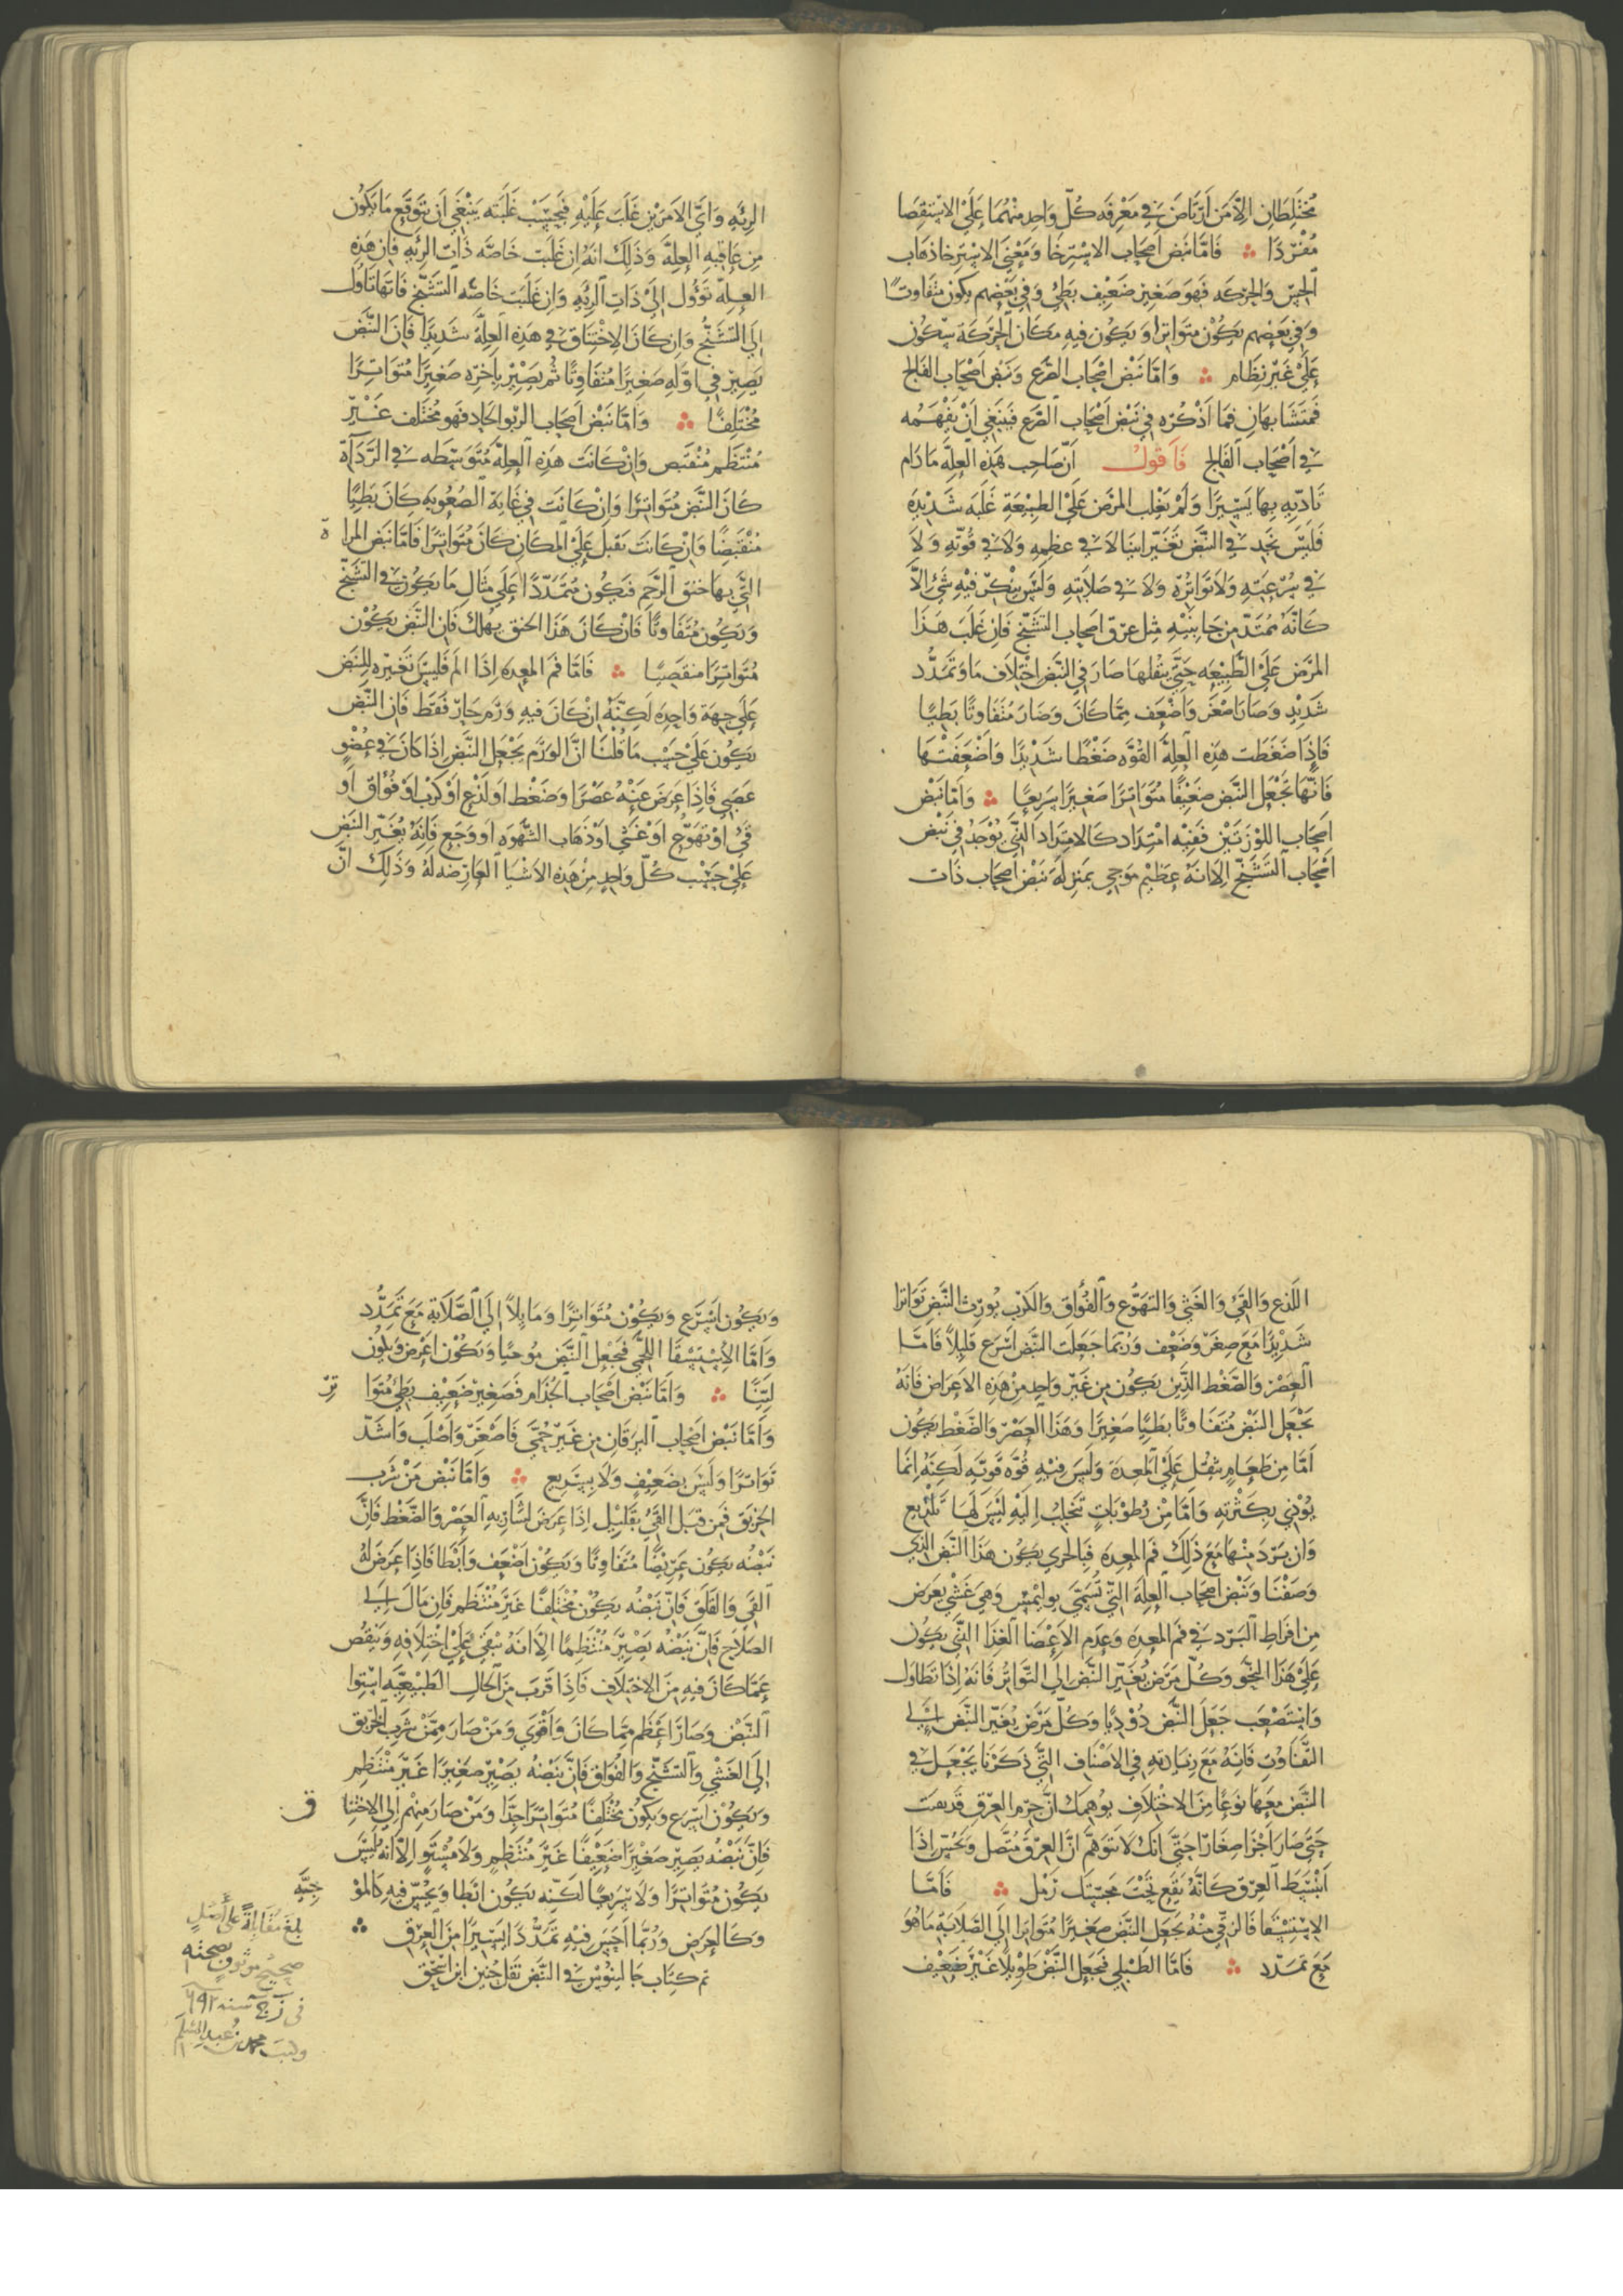 مُختَلِطَانِ الَّا لمَن اَرتَاضَ في مَعرِفَه كُلّ وَاحِدٍ مِنهُمَا عَلَي الاِستِقصَا
مُفْرَدًا ؞ فَامَّا نَبض اَصحَاب الاسِترخَا وَمَعْنَي الاِسترخا ذهَاب
الحِسّ وَالحَركَه فَهوَ صَغير ضَعِيف بَطِيٌ وَفي بَعْضِهم يكون متفَاوتًا
وَفي بَعضِهم يَكُوْن متَواتِرا وَيَكُون فيهِ مَكَان الحرَكَة سكون
عَلَي غَيْر نظَام ؞ وَامَّا نَبْض اَصْحَاب الصَّرَع وَنَبض اَصْحَاب الفَالج
فَمتَشَابهَانِ فمَا اَذْكُرهُ في نَبْضِ اَصْحَاب الصَّرَع فَينَبَغي اَنْ يَفْهَمُه
في اَصْحَاب الفَالج فَاَقولُ اَنّ صَاحِب هَذِهِ العِلَّه مَا دَام
تَاذّيهِ بهَا يَسِيْرًا وَلَمْ يَغْلب المرَض عَلَيْ الطبِيْعَةِ غَلَبَه شَدِيْدَةً
فَلَيسَ نَجد في النَّبْض تَغَيّرًا بَيّنًا لَا في عظمِهِ وَلَا في قُوّتهِ وَلَا
في سُرْعَتهِ وَلَا تَوَاتُرهِ وَلَا في صَلَابتِهِ وَلَيْسَ ينْكَرُ فيْهِ شَيْ الَّا
كَانّهُ مُمْتَدّ مِن جَانِبَيْهِ مثل عرْق اَصحَاب التشَنّج فَان غَلَبَ هَذَا
المرَض عَلَيْ الطَّبِيْعَه حَتّي يثْقلهَا صَارَ في النَّبْض اختْلَاف مَا وَتَمَدُّد
شَدِيد وَصَارَ اصْغَر وَاَضْعَف مِمَّا كَانَ وَصَارَ مُتَفَاوتًا بَطِيًا
فَاِذَا ضَغَطَت هَذِه العِلَّه القُوَّه ضَغْطًا شَدْيدًا وَاَضْعَفَتْهَا
فَانّهَا تَجْعَل النَّبض ضَعِيْفًا مُتَوَاتِرًا صَغيْرًا سَرِيعًا ؞ وَامّا نَبْض
اَصحَاب اللوْزَتَيْن فَفِيْه امْتِدَاد كَالامتِدَاد الذّي يُوْجَدُ في نَبْض
اَصْحَاب التّشَنّج اِلَّا انّهُ عَظِيْم مَوْجي بمَنزِلَه نَبْض اَصحَاب ذَات
الرئَهِ وَايّ الاَمرَيْنِ غَلَبَ عَلَيْهِ فَبِحَسَبْ غَلَبتَه يَنْبَغي اَن يتَوقَع مَا يَكُون
مِن عَاقِبَهِ العِلّة وَذَلِكَ انهُ اِن غَلَبَت خَاصّه ذَات الرِئَهِ فَان هَذِهِ
العِلّه تَؤُول اِلَى ذَاتِ الرِئَهِ وَاِن غَلَبَتْ خَاصّه التشنّج فَانّهَا تَاوُل
اِلَى التَشَنُّج وَان كَانَ الاِخْتِنَاق في هَذِهِ العِلَّة شَدِيدًا فَانَ النَّبض
يَصِيْر فِي اَوّلهِ صَغيرًا مُتَفَاوتًا ثُم يَصِيْر باَخرَه صَغِيرًا مُتَوَاترًا
مُخْتَلِفًا ؞ وَامّا نَبْض اَصحَاب الربو الحَاد فهو مُختَلف غَيْر
مُنْتَظَم مُنْقَبَض وَانْ كَانَت هَذِهِ العِلَّة مُتَوَسِّطه في الرَّدَآءَة
كَانَ النَّبض مُتَوَاترًا وَاِنْ كَانَت في غَايَة الصُعُوبَه كَان بَطِيًا
مُنْقَبِضًا وَاِنْ كَانَت تقبل عَلَيْ المكَان كَانَ مُتَوَاترًا فَامّا نَبض المراة
التَّي بهَا خنق الرَّحِم فَيَكُون مُتَمَدّدًا عَلَي مِثَال مَا يَكُون في التشَنّج
وَيَكُون مُتَفَاوتًا فَاِنْ كَانَ هَذَا الخنق يهلك فَان النَّبْض يَكُوْن
مُتَواترًا منقصبًا ؞ فَامّا فَم المعِده اِذَا الم فَلَيسَ تغَيّره للنَبْض
عَلَي جهَة وَاحِدَه لَكِنّهُ اِنْ كَانَ فيهِ وَرَم حَارّ فَقَط فَانّ النَّبض
يَكُون عَلَيْ حَسَب مَا قُلْنَا انَّ الورَم يَجْعَل النَّبض اِذَا كَانَ في عُضْوٍ
عَصَبي فَاِذَا عَرَضَ عَنْهُ عَصْرًا وَضَغْط اَو لَذْع اَوْ كَرْب اَوْ فُوَاق اَو
قَيْ اَوْ تهَوُّع اَوْ غَشي اَو ذَهَاب الشَّهْوَه اَو وَجَع فَانّهُ يُغَيّر النَبض
عَلَيْ حَسَبْ كُلّ وَاحِدٍ مِنْ هَذِهِ الاَشْيَا العَارِضَه لَهُ وَذَلِكَ انّ
اللَذع وَالقَيْ وَالغَشي وَالتَهَوُّع وَالفُوَاق وَالكَرْب يُورِث النَّبْض تَوَاترا
شَدْيدًا مَعَ صِغَر وَضَعْف وَرُبّمَا جَعَلَت النَّبض اَسْرَع قَليلاً فَامّا
العَصْر وَالضَّغْط الذَّين يَكُون مِن غَيْر وَاحِد مِنْ هَذِهِ الاَعرَاض فَانّهُ
يَجْعَل النَّبْض مُتَفَاوتًا بَطيًا صَغِيرًا وَهَذَا العَصْر وَالضَّغْط يَكُون
اَمّا مِن طَعَامٍ يثقل عَلَي المعِدَة وَلَيْسَ فيْهِ قُوّه قويّه لَكنّهُ اِنّما
يُوْذي بِكَثْرتهِ وَامّا مِنْ رُطوبَاتٍ تَجلبُ اِليْهِ لَيْسَ لَهَا تلذِيع
وَان بَرَدَ منْهَا مَعَ ذَلِكَ فَم المعِدَه فَبِالحَري يَكُون هَذَا النَّبض الذي
وَصَفْنَا وَنَبْض اَصحَاب العِلّة التّي تُسَمّي بوليمس وَهيَ غَشْي يعرَض
مِن افرَاطِ البَرْد في فَم المعِدَه وَعَدَم الاَعْضَا الغِذَا الذَّي يَكُون
عَلَيْ هَذَا النَّحْو وَكُلّ مَرَض يُغَيّر النَّبْض اِلي التَّوَاتُر فَانّهُ اِذَا تَطَاوَل
وَاسْتَصْعَب جَعَلَ النَّبْض دُوْديًا وَكُلّ مَرَض يُغَيّر النَّبْض اِلَي
التَّفَاوُت فَانّهُ مَعَ زِيَادتهِ فِي الاَصْنَاف التَّي ذَكَرْنَا يَجْعَل في
النَّبْض مَعهَا نَوعًا مِنَ الاخْتلَاف يوُهمك انّ جِرْم العِرْقِ قَد تفَتّت
حَتَّي صَارَ اَجْزَا صِغَارًا حَتّي انّك لَا تتَوَهَّم انَّ العِرْقَ مُتّصل وَتُحِسّ اِذَا
اَنْبَسَطَ العِرْق كَانّهُ يَقَع تَحْتَ مَجَسّتك رَمْل ؞ فَامّا
الاِسْتِسْقا فَالزِقّي مِنْهُ يَجْعَل النَّبض صَغيرًا مُتَواترًا اِلَي الصَّلَابَة مَا هُوَ
مَعَ تَمَدّد ؞ فَامّا الطَبْلي فَيجعَل النَّبْض طَوِيْلًا غَيْرَ ضَعِيْف
وَيَكُون اَسْرَع وَيَكُوْن مُتَوَاترًا وَمَايلاً اِلَي الصَّلَابَة مَعَ تَمَدُّد
وَامّا الاِسْتِسْقَا اللحْمي فَيجْعل النَّبض مُوجيًا وَيَكُوْن اَعرَض وَيكُون
لَيّنًا ؞ وَامّا نَبْض اَصْحَاب الجُذَام فَصَغِيْر ضَعِيْف بَطي متوَا تِرْ
وَامّا نَبْض اَصْحَاب اليرَقَان مِن غَيْرِ حُمّي فَاصْغَر وَاصْلَب وَاشَدّ
تَوَاترًا وَلَيْسَ بضَعِيْفٍ وَلَا بسَرِيع ؞ وَامّا نَبْض مَنْ شَرب
الخربَق فَمِن قبَل القَيْ بقَلِيْل اِذَا عَرَضَ لشَارِبهِ العَصْر وَالضَّغْط فَانَّ
نَبْضهُ يَكُون عَرِيْضًا مُتَفَاوتًا وَيَكُوْن اَضْعَف وَاَبْطَا فَاِذَا عَرَضَ لهُ
القَيْ وَالقَلَق فَانّ نَبْضهُ يَكُوْن مُخْتَلفًا غَيْرَ مُنْتَظم فَان مَالَ اِلي
الصَلَاحِ فَانَّ نَبْضهُ يَصِيْر مُنْتَظِمًا اِلَّا انَّهُ يبْقَي عَلَيْ اخْتِلَافهِ وَيَنْقُص
عَمّا كَانَ فيهِ مِنَ الاخْتلَاف فَاِذَا قَرَبَ مِنَ الحَالِ الطَبِيْعيّه اسْتِوا
النَّبْض وَصَارَ اعْظَم مِمّا كَانَ وَاَقْوَي وَمَنْ صَارَ مِمَّنْ شَرِبَ الخربق
اِلَى الغَشْي وَالتشَنّج وَالفُوَاق فَانَّ نَبْضهُ يَصْيْر صَغيْرًا غَيْرَ مُنْتَظم
وَيَكُوْن اَسْرَع وَيَكُون مُخْتَلفًا مُتَوَاترًا جِدًّا وَمَنْ صَارَ مِنْهُم اِلي الاِخْتنا ق
فَانّ نَبْضهُ يصِيْر صَغيْرًا ضَعِيْفًا غَيْرَ مُنْتَظمٍ وَلَا مُسْتَوٍ اِلَّا انّه لَيْسَ
يَكُون مُتَوَاترًا وَلَا سَرِيعًا لَكنّهُ يَكُون ابْطَا وَيُحِسّ فيهِ كَالموْ جِيَّهِ
وَكَالعِرَضِ وَرُبَّمَا اَحَسّ فيْهِ تَمَدُّدًا يَسِيْرًا مِنَ العِرْقِ ؞
تم كِتَاب جَالينوس في النَّبْض نَقل حُنين ابن اسحق
بلغ مُقَابلةً على أصلٍ
صحيحٍ موثوقٍ بصحته
في رجب سنه ٦٩٢
وكتب محمد بن عبد المسلم